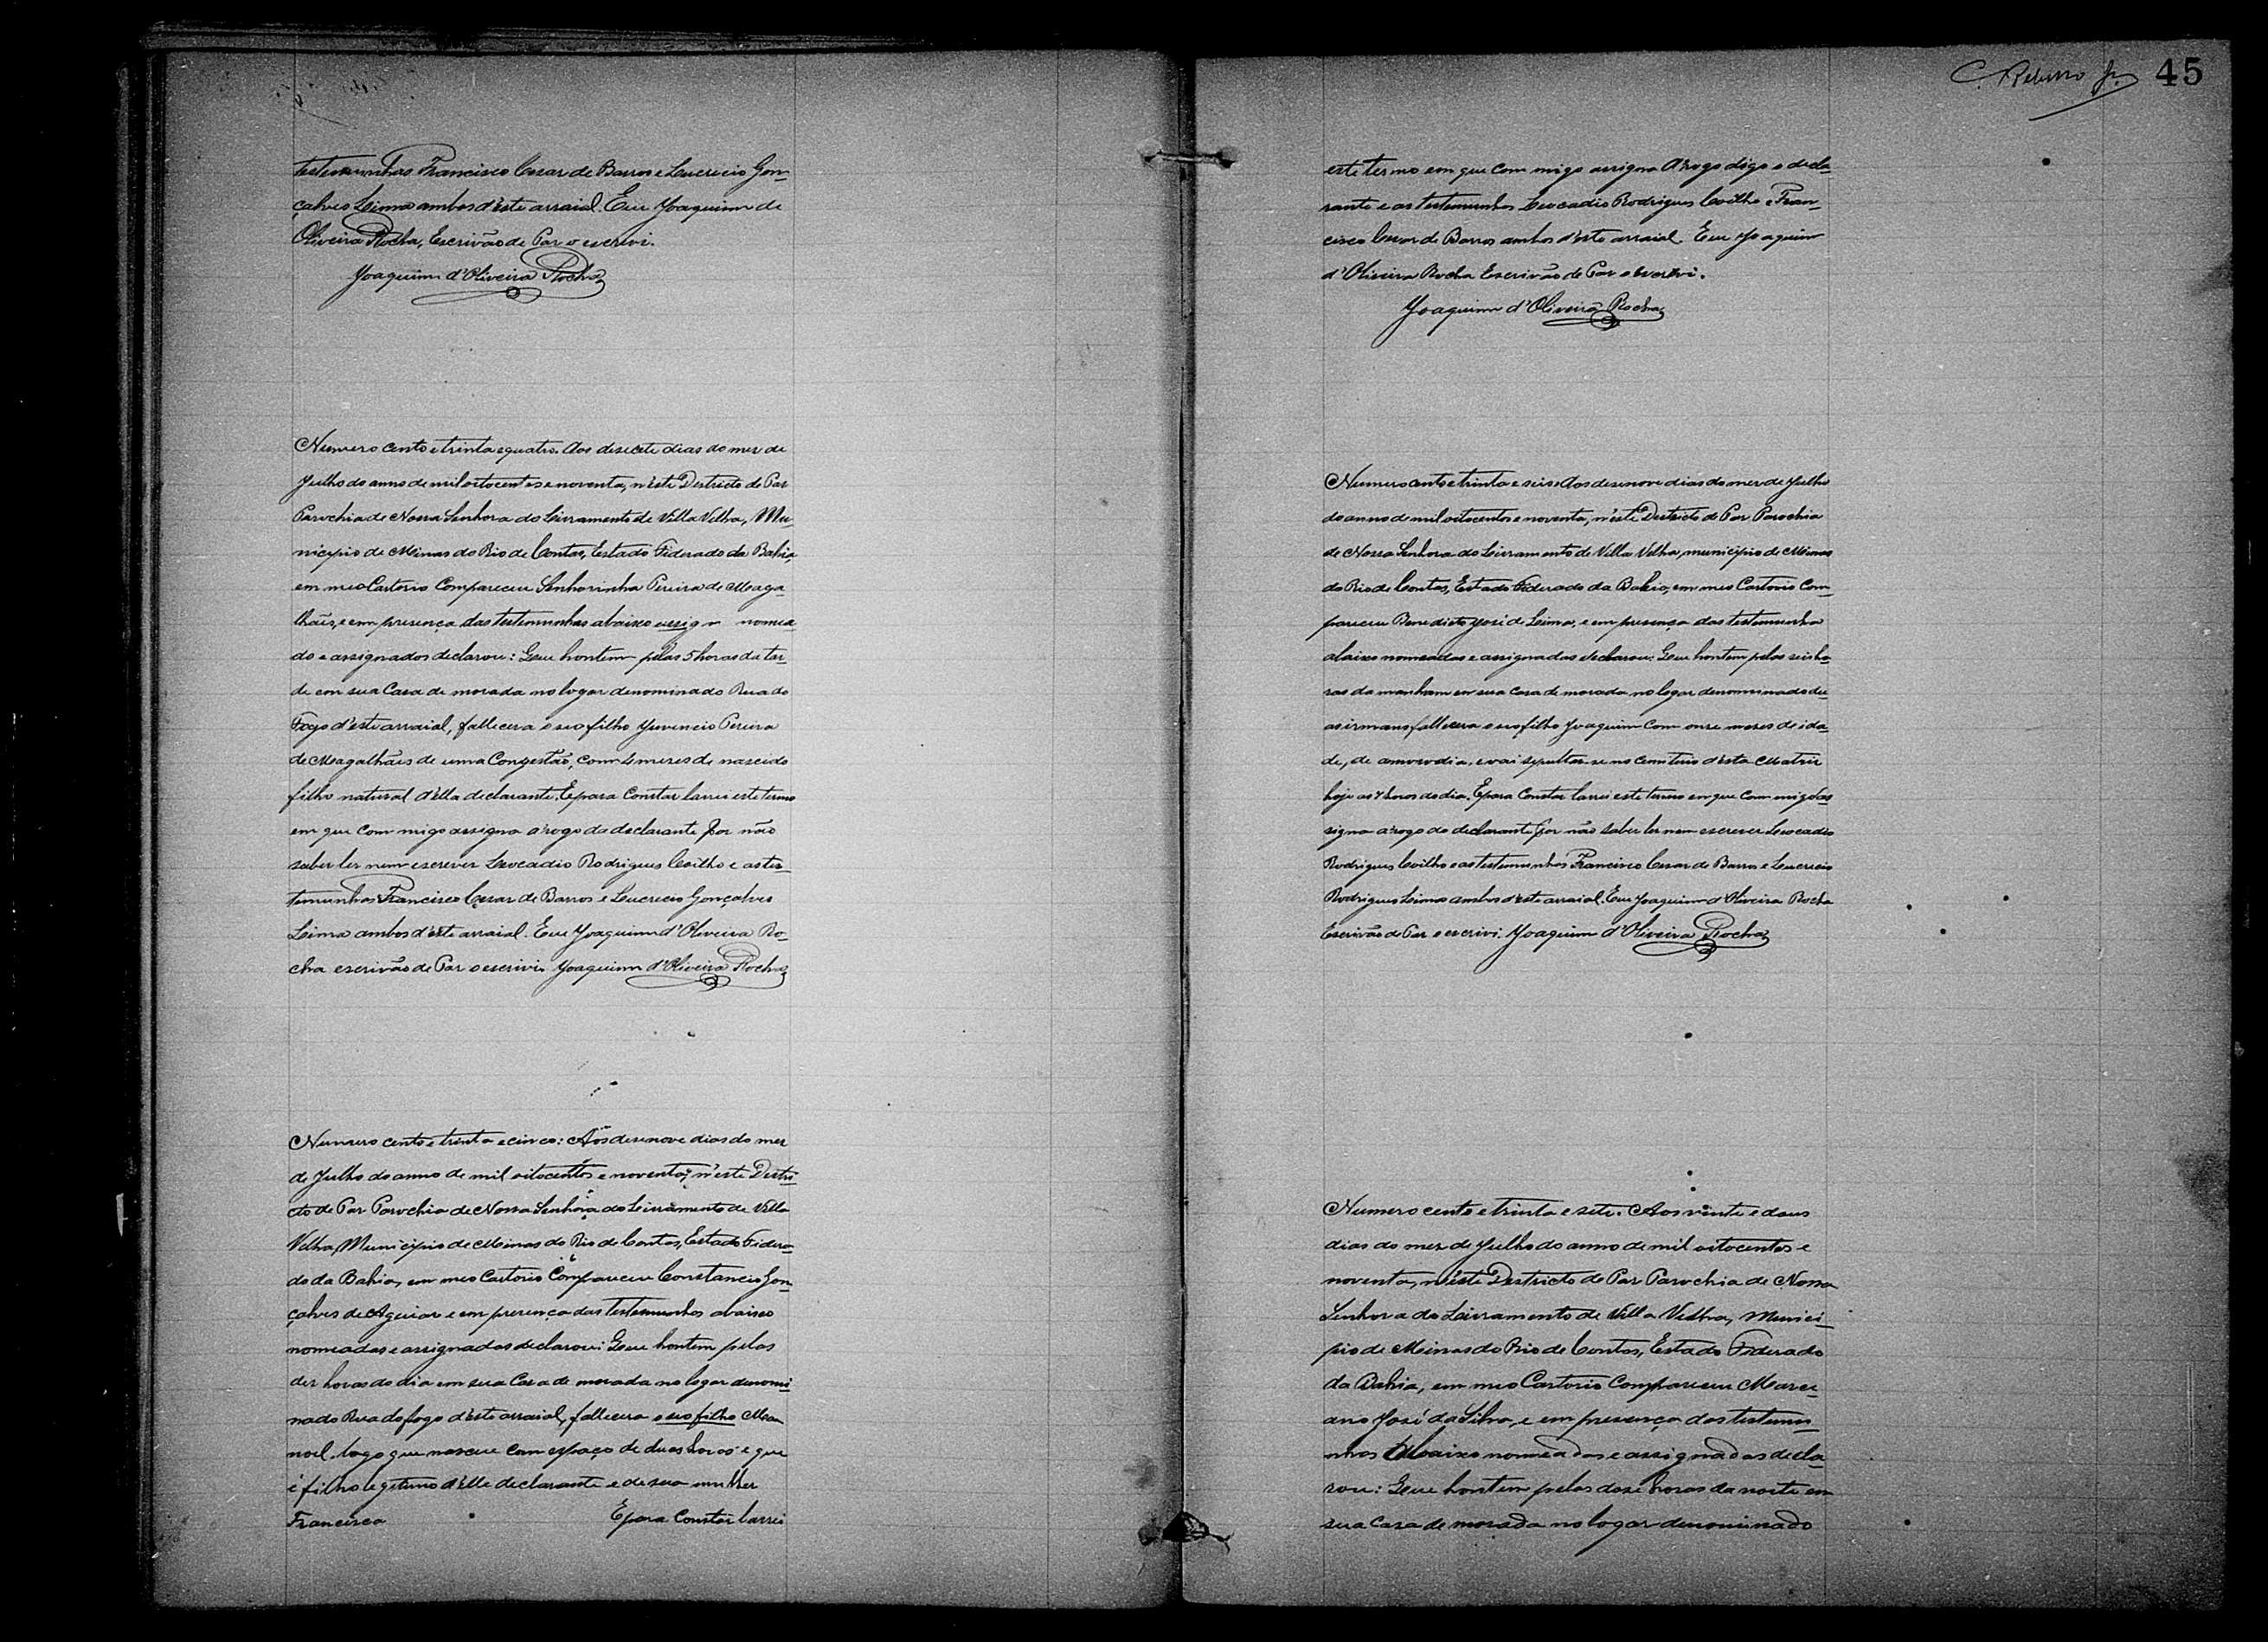 testemunhas Francisco Cesar de Barros e Lucrecio Gon-
çalves Lima ambos d'este arraial. Eu Joaquim de
Oliveira Rocha, Escrivão de Paz o escrevi.
Joaquim d'Oliveira Rocha
Numero cento e trinta e quatro. Aos desecete dias do mez de
Julho do anno de mil oitocentos e noventa, n'este Destricto de Paz
Parochia de Nossa Senhora do Livramento de Villa Velha, Mu-
nicipio de Minas do Rio de Contas, Estado Federado da Bahia,
em meo Cartorio Compareceu Senhorinha Pereira de Maga-
lhães, e em presença das testemunhas abaixo assig nomea
do e assignados declarou: Que hontem pelas 5 horas da tar-
de em sua Casa de morada no logar denominado Rua do
Fogo d'este arraial, fallecera o seo filho Juvencio Pereira
de Magalhães de uma Congestão, com 4 mezes de nascido
filho natural d'ella declarante. E para Constar lavrei este termo
em que com migo assigna a rogo da declarante por não
saber ler nem escrever Leocadio Rodrigues Coitho e as tes-
temunhas Francisco Cezar de Barros e Lucrecio Gonçalves
Lima ambos d'este arraial. Eu Joaquim d'Oliveira Ro-
cha escrivão de Paz o escrivi. Joaquim d'Oliveira Rocha
Numero cento e trinta e cinco: Aos desenove dias do mez
de Julho do anno de mil oitocentos e noventa, n'este Destri-
cto de Paz Parochia de Nossa Senhora do Livramento de Villa
Velha, Municipio de Minas do Rio de Contas, Estado Federa-
do da Bahia, em meo Cartorio Compareceu Constancio Gon-
çalves de Aguiar e em presença das testemunhas abaixo
nomeadas e assignadas declarou: Que hontem pelas
dez horas do dia em sua Casa de morada no logar denomi-
nado Rua do fogo d'este arraial, fallecera o seo filho Ma-
noel, logo que nasceu com espaço de duas horas e que
é filho legitimo d'elle declarante e de sua mulher
Francisca E para Constar lavrei
45
este termo em que com migo assigna A rogo digo o decla-
rante e as testemunhas Leocadio Rodrigues Coitho e Fran-
cisco Cesar de Barros ambos d'este arraial. Eu Joaquim
d'Oliveira Rocha Escrivão de Paz o escrevi.
Joaquim d'Oliveira Rocha
Numero cento e trinta e seis. Aos desenove dias do mez de Julho
do anno de mil oitocentos e noventa, n'este Destricto de Paz Parochia
de Nossa Senhora do Livramento de Villa Velha, municipio de Minas
do Rio de Contas, Estado Federado da Bahia, em meo Cartorio Com-
pareceu Benedicto José de Lima, e em presença das testemunha
abaixo nomeadas e assignadas declarou: Que hontem pelas seis ho-
ras da manham em sua Casa de morada no logar denominado du-
as irmans fallecera o seo filho Joaquim com onze mezes de ida-
de, de e vai sepultar-se no cemiterio d'esta Matriz
hoje as 4 horas do dia. E para Constar lavrei este termo em que com migo as
signa a rogo do declarante por não saber ler nem escrever Leocadio
Rodrigues Coitho e as testemunhas Francisco Cesar de Barros e Lucrecio
Rodrigues Lima ambos d'este arraial. Eu Joaquim d'Oliveira Rocha
Escrivão de Paz o escrivi. Joaquim d'Oliveira Rocha
Numero cento e trinta e sete. Aos vinte e dous
dias do mez de Julho do anno de mil oitocentos e
noventa, n'este Destricto de Paz Parochia de Nossa
Senhora do Livramento de Villa Velha, Munici-
pio de Minas do Rio de Contas, Estado Federado
da Bahia, em meo Cartorio Compareceu Marci-
ano José da Silva, e em presença das testemu-
nhas Abaixo nomeadas e assignadas decla-
rou: Que hontem pelas doze horas da noite em
sua Casa de morada no logar denominado